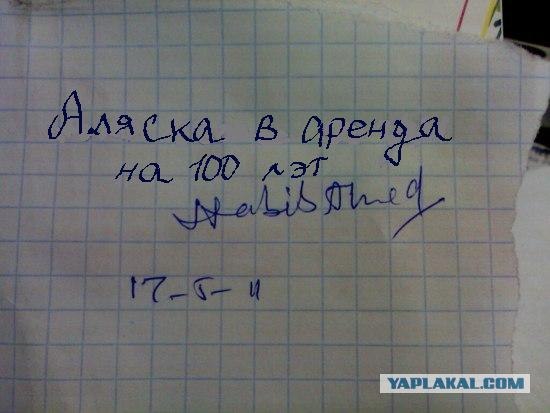 Аляска в аренда
на 100 лэт
Habib Ahmed
17-5-11
YAPLAKAL.COM